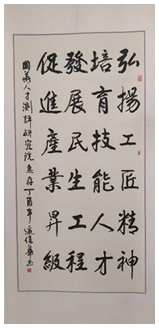 弘揚工匠精神
培育技能人才
發展民生工程
促進產業昇級
國藝人才測評研究院惠存丁酉年